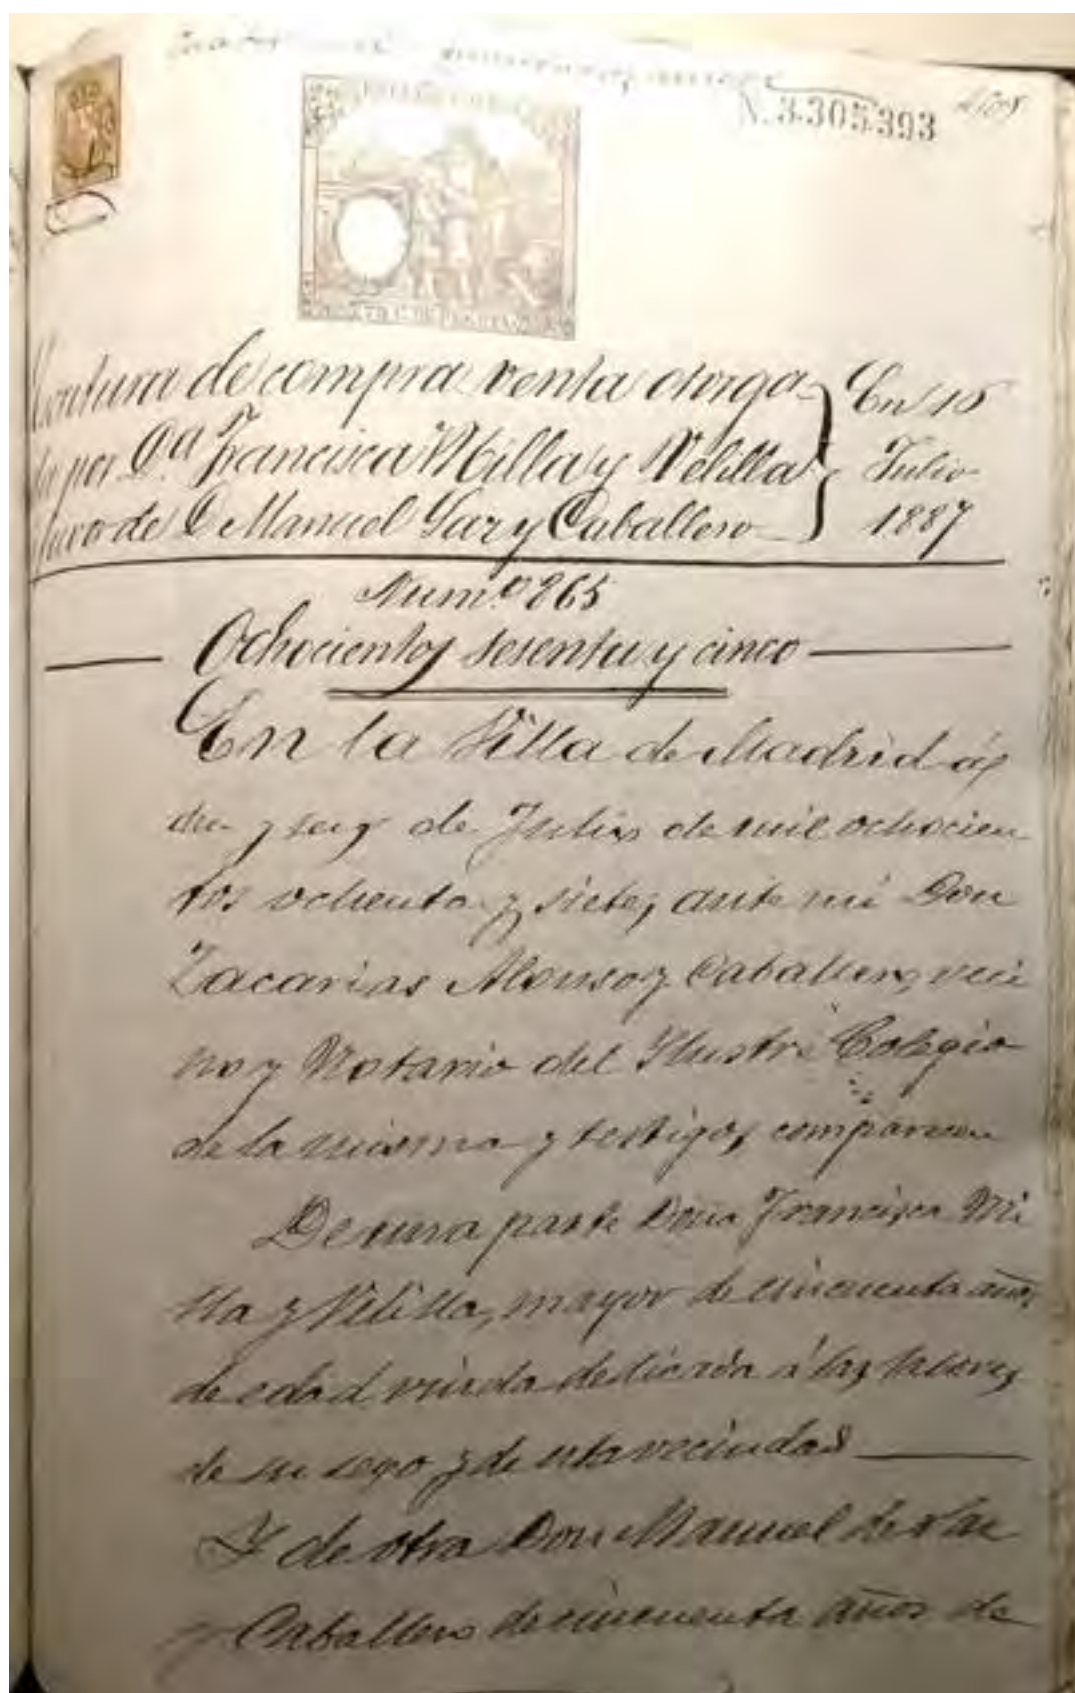 N. 3.305.393
Escritura de compra venta otorga-
da por D.ª Francisca Milla y Velilla
favor de D Manuel Saez y Caballero
En 16
Julio
1887
Num.º 865
Ochocientos sesenta y cinco
En la Villa de Madrid á
diez y seis de Julio de mil ochocien
tos ochenta y siete, ante mi Don
Zacarias Alonso y Caballero, veci
no y Notario del Ilustre Colegio
de la misma y testigos, comparecen
De una parte Doña Francisca Mi
lla y Velilla, mayor de cincuenta años
de edad viuda dedicada á las labores
de su sexo y de esta vecindad
Y de otra Don Manuel
y Caballero de cincuenta años de